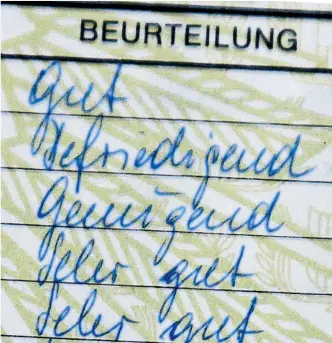 BEURTEILUNG
Gut
Befriedigend
Genügend
Sehr gut
Sehr gut